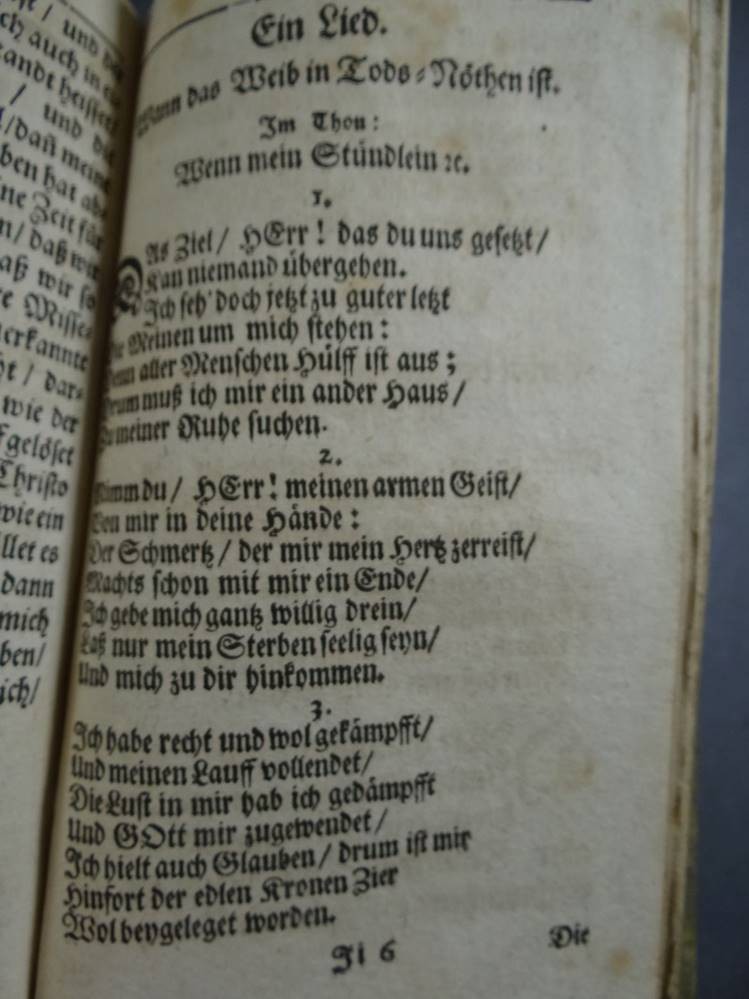 st / und
ch auch in
andt heissen
/ und
/ dañ meine
ben hat
ne Zeit für
n / daß wir
aß wir so
e Misse-
erkannte
t / dar-
wie der
fgelöset
Christo
wie ein
llet es
dann
mich
ben /
ich /
Ein Lied.
Wann das Weib in Tods-Nöthen ist.
Im Thon:
Wenn mein Stündlein ꝛc.
1.
DAs Ziel / HErr! das du uns gesetzt /
Kan niemand übergehen.
Ich seh' doch jetzt zu guter letzt
Die Meinen um mich stehen:
Denn aller Menschen Hülff ist aus;
Drum muß ich mir ein ander Haus /
Zu meiner Ruhe suchen.
2.
Nimm du / HErr! meinen armen Geist /
Von mir in deine Hände:
Der Schmertz / der mir mein Hertz zerreist /
Machts schon mit mir ein Ende /
Ich gebe mich gantz willig drein /
Laß nur mein Sterben seelig seyn /
Und mich zu dir hinkommen.
3.
Ich habe recht und wol gekämpfft /
Und meinen Lauff vollendet /
Die Lust in mir hab ich gedämpfft
Und GOtt mir zugewendet /
Ich hielt auch Glauben / drum ist mir
Hinfort der edlen Kronen Zier
Wol beygeleget worden.
Ji 6
Die